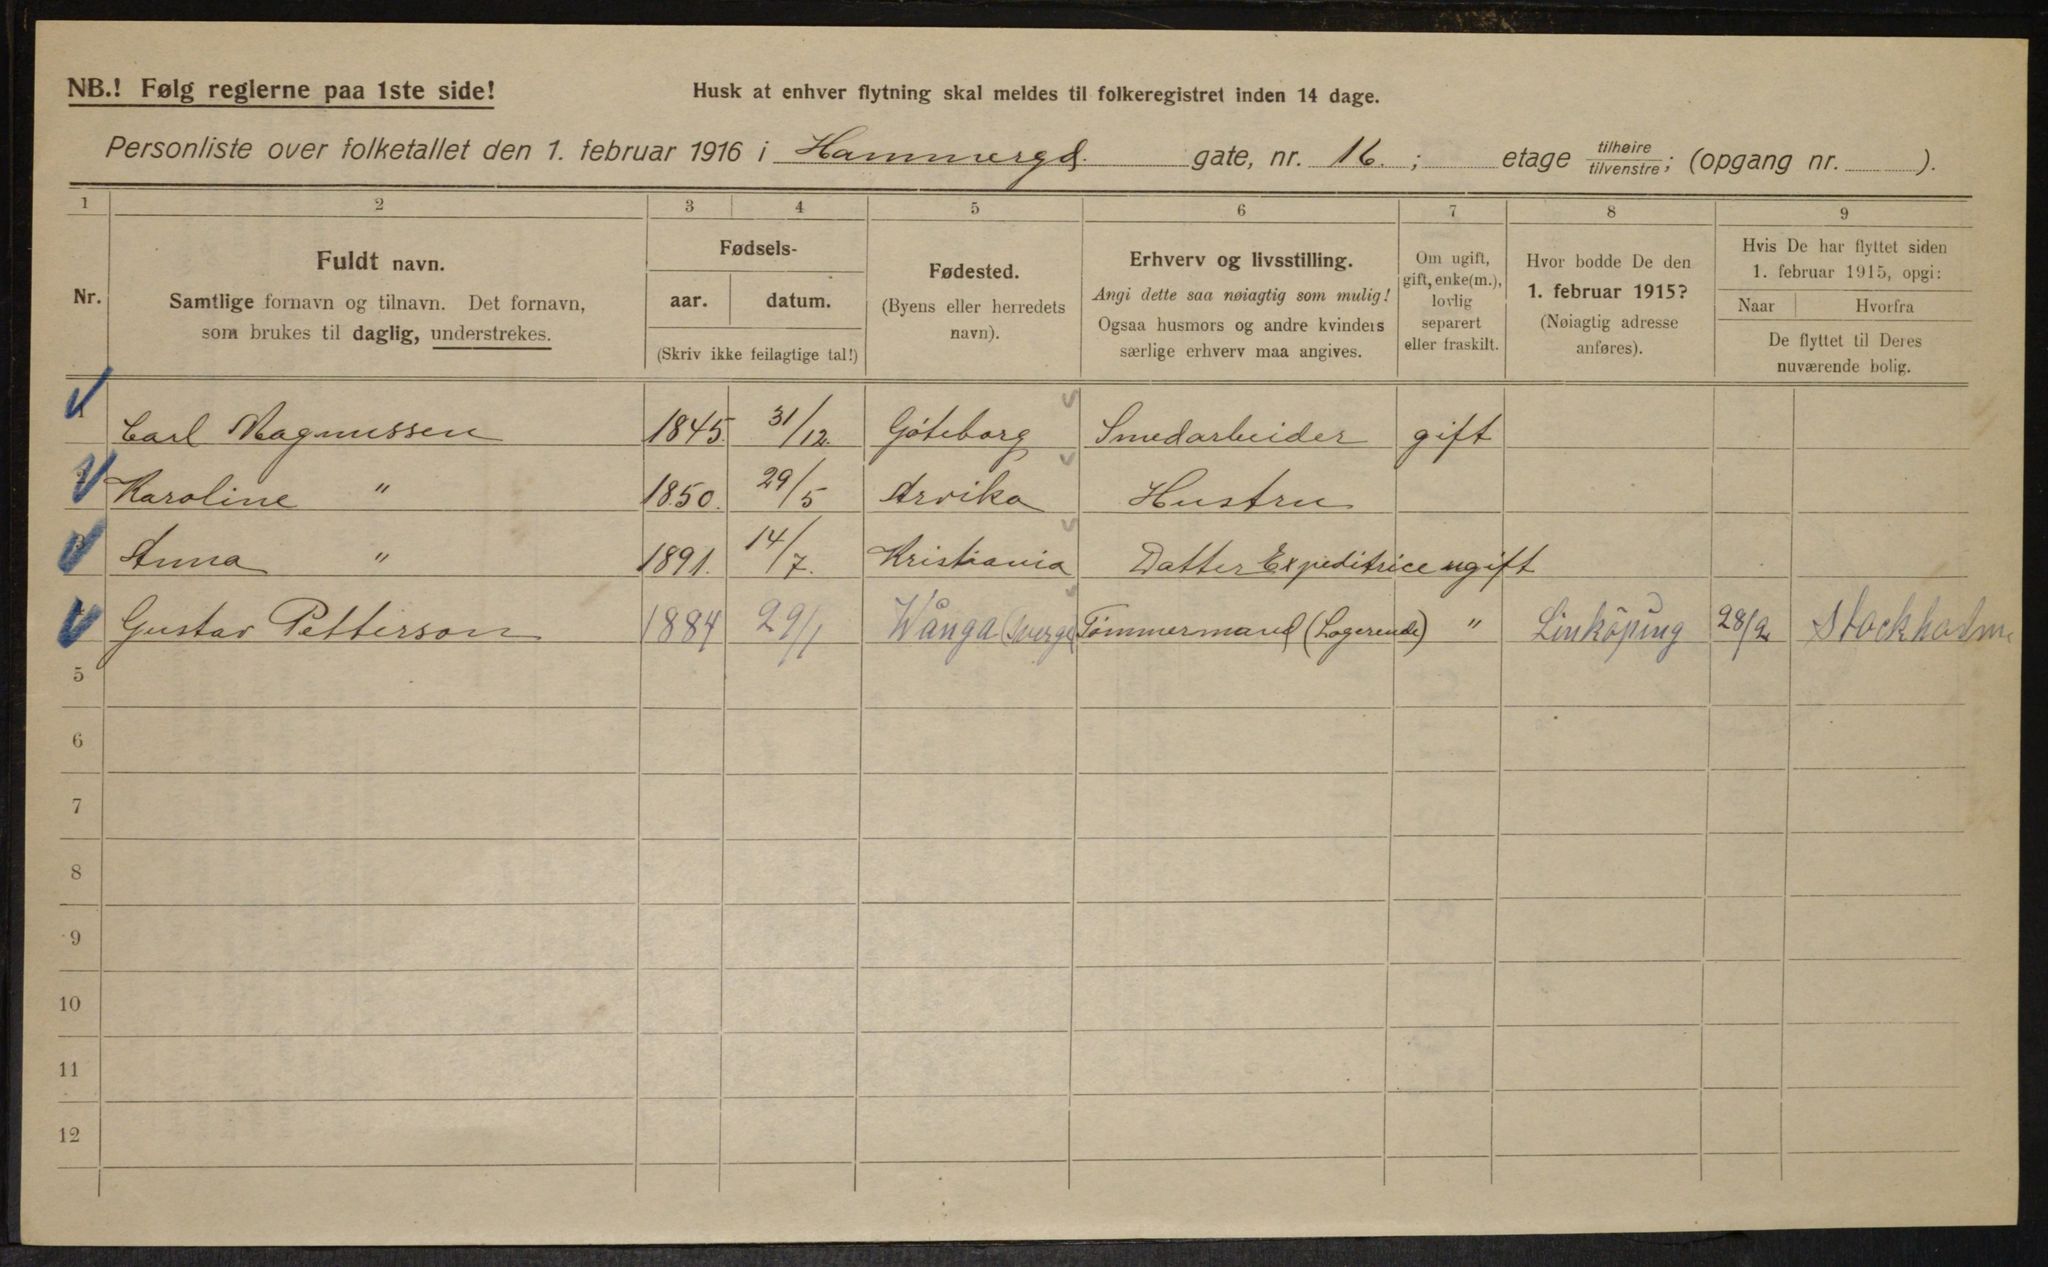 NB.! Følg reglerne paa 1ste side!
Husk at enhver flytning skal meldes til folkeregistret inden 14 dage.
Personliste over folketallet den 1. februar 1916 i Hammergd. gate, nr. 16. ; etage tilhøire/tilvenstre; (opgang nr. ).
1 2 3 4 5 6 7 8 9
Nr.
Fuldt navn.
Samtlige fornavn og tilnavn. Det fornavn,
som brukes til daglig, understrekes.
Fødsels-
aar. datum.
(Skriv ikke feilagtige tal!)
Fødested.
(Byens eller herredets
navn).
Erhverv og livsstilling.
Angi dette saa nøiagtig som mulig!
Ogsaa husmors og andre kvinders
særlige erhverv maa angives.
Om ugift,
gift, enke(m.),
lovlig
separert
eller fraskilt.
Hvor bodde De den
1. februar 1915?
(Nøiagtig adresse
anføres).
Hvis De har flyttet siden
1. februar 1915, opgi:
Naar Hvorfra
De flyttet til Deres
nuværende bolig.
1 Carl Magnussen 1845. 31/12. Göteborg Smedarbeider gift
Karoline " 1850. 29/5 Arvika Hustru
Anna " 1891. 14/7. Kristiania Datter Expeditrice ugift
Gustav Petterson 1884 29/1 Wånga (Sverge) Tömmermand (Logerende) " Linköping 28/2 Stockholm
5
6
7
8
9
10
11
12